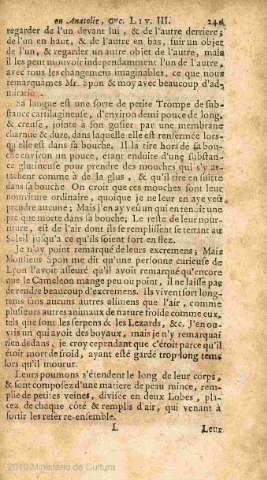 en Anatolie, &c. LIV. III. 241
regarder de l'un devant lui, & de l'autre derriere;
de l'un en haut, & de l'autre en bas, suir un objet
de l'un, & regarder un autre objet de l'autre, mais
il les peut mouvoir independamment l'un de l'autre,
avec tous les changemens imaginables, ce que nous
remarquâmes Mr. Spon & moy avec beaucoup d'ad-
miration.
Sa langue est une sorte de petite Trompe de subs-
tance cartilagineuse, d'environ demi pouce de long,
& creuse, jointe à son gosier par une membrane
charnuë & dure, dans laquelle elle est renfermée lors-
qu'elle est dans sa bouche. Il la tire hors de sa bou-
che environ un pouce, étant enduite d'une substan-
ce gluineuse pour prendre des mouches qui s'y at-
tachent comme à de la glus, & qu'il tire en suitte
dans sa bouche. On croit que ces mouches sont leur
nourriture ordinaire, quoique je ne leur en aye veu
prendre aucune; Mais j'en ay veu un qui en tenoit une
prise morte dans sa bouche; Le reste de leur nour-
riture, est de l'air dont ils se remplissent se tenant au
Soleil jusqu'à ce qu'ils soient fort enflez.
Je n'ay point remarqué de leurs excremens; Mais
Monsieur Spon me dit qu'une personne curieuse de
Lyon l'avoit asseuré qu'il avoit remarqué qu'encore
que le Cameleon mange peu ou point, il ne laisse pas
de rendre beaucoup d'excremens. Ils vivent fort long-
tems sans aucuns autres alimens que l'air, comme
plusieurs autres animaux de nature froide comme eux,
tels que sont les serpens & les Lezards, &c. J'en ou-
vris un qui avoit des boyaux, mais je n'y remarquai
rien dedans, je croy cependant que c'étoit parce qu'il
étoit mort de froid, ayant esté gardé trop long tems
lors qu'il mourut.
Leurs poumons s'étendent le long de leur corps,
& sont composez d'une matiere de peau mince, rem-
plie de petites veines, divisée en deux Lobes, pla-
cea de chaque côté & remplis d'air, qui venant à
sortir les resserre ensemble.
L Leur
2010 Ministério da Cultura